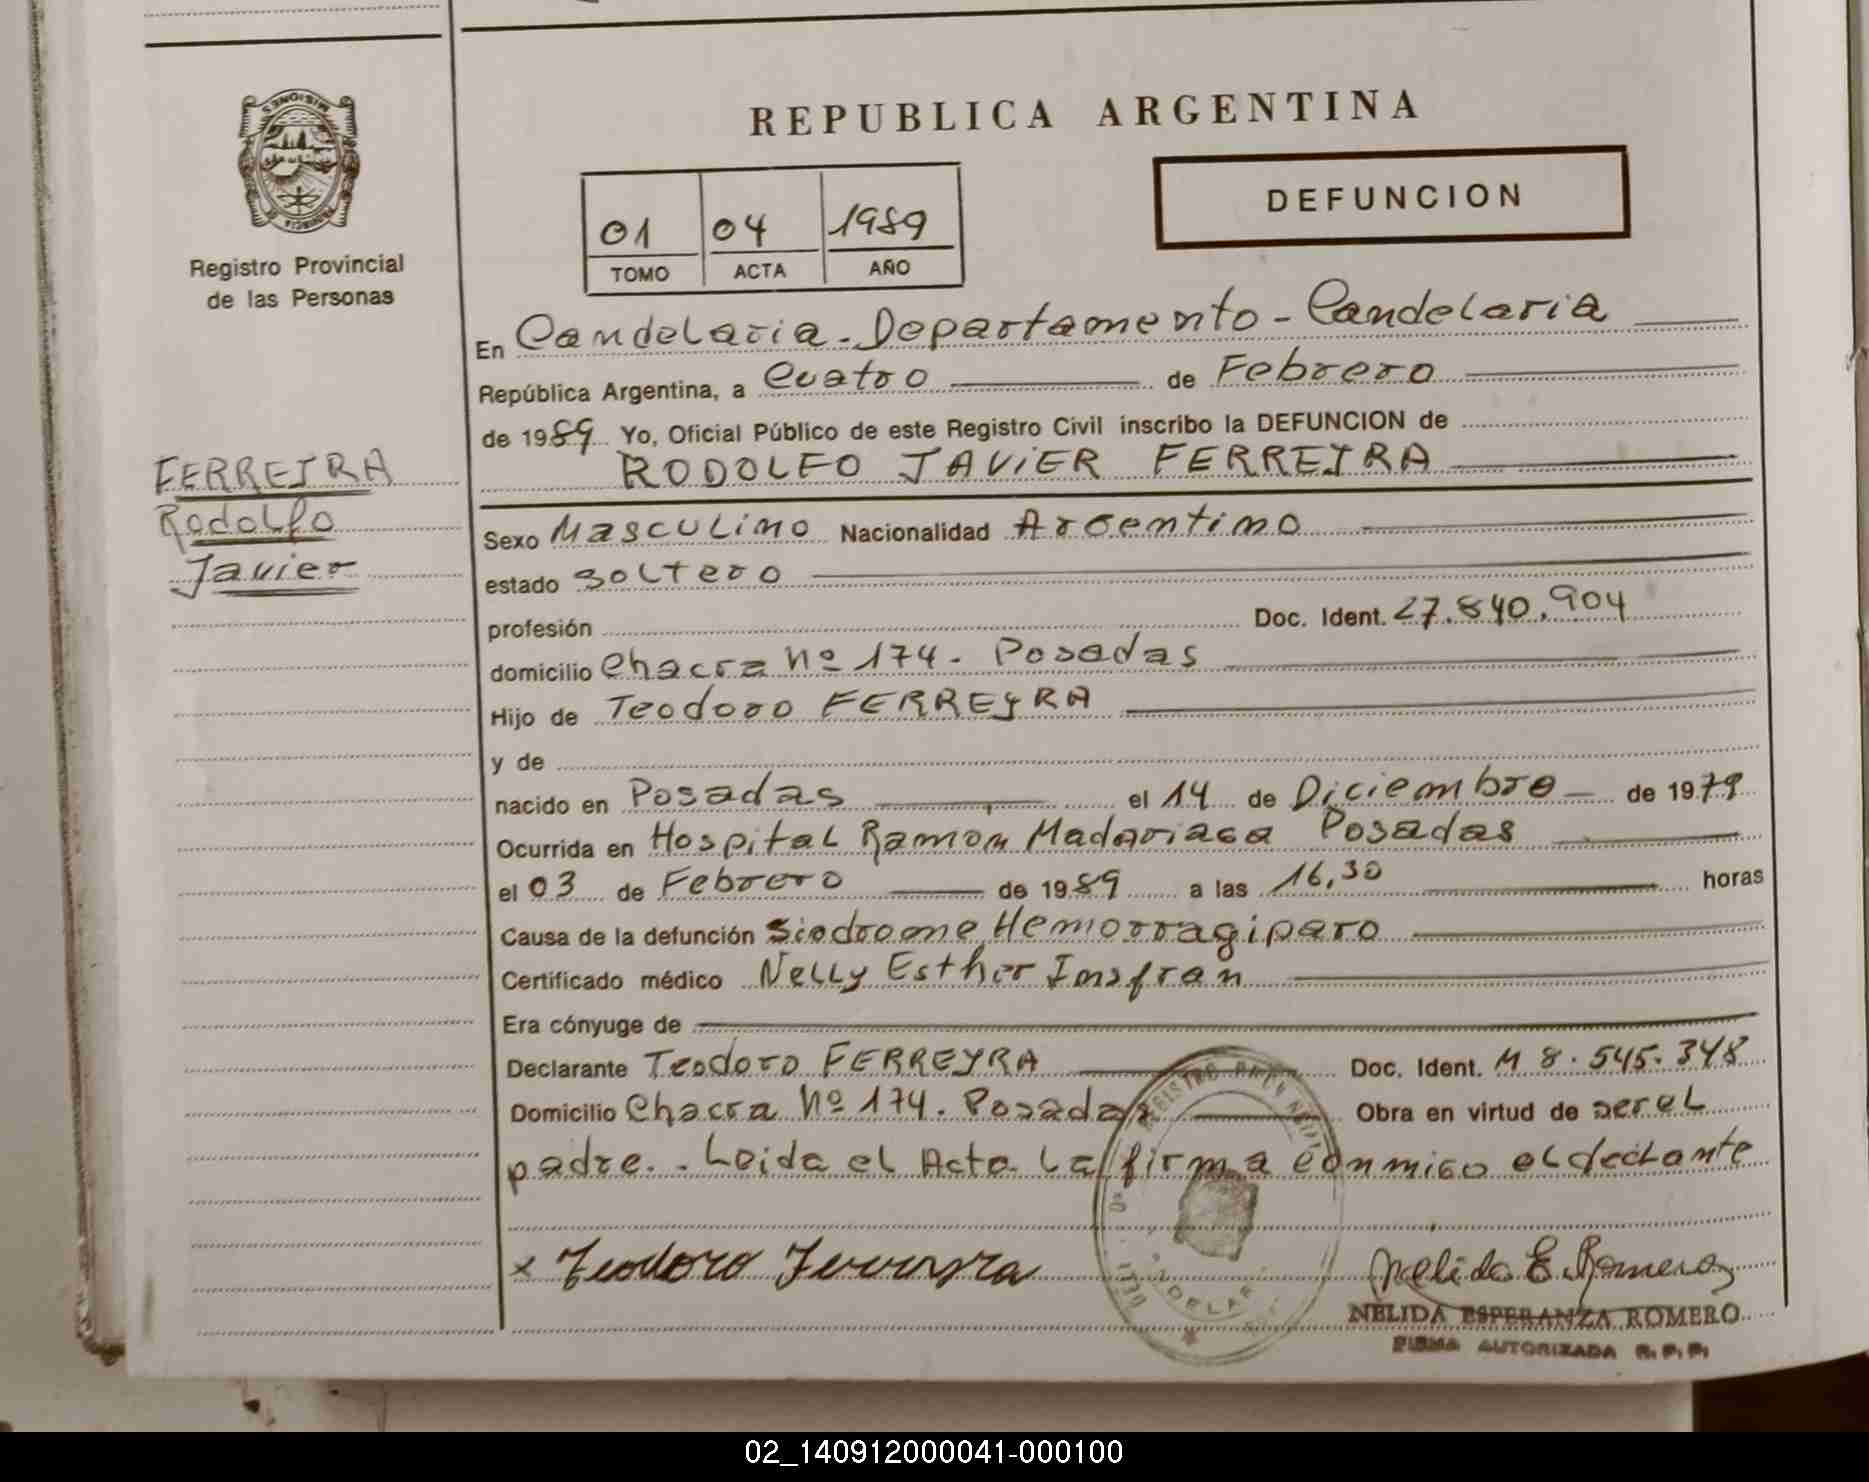 MISIONES
PROVINCIA DE
Registro Provincial
de las Personas
FERREIRA
Rodolfo
Javier
REPUBLICA ARGENTINA
01 04 1989
TOMO ACTA AÑO
DEFUNCION
En Candelaria - Departamento - Candelaria
República Argentina, a Cuatro de Febrero
de 1989 Yo, Oficial Público de este Registro Civil inscribo la DEFUNCION de
RODOLFO JAVIER FERREIRA
Sexo Masculino Nacionalidad Argentino
estado Soltero
profesión Doc. Ident. 27.840.904
domicilio Chacra Nº 174. Posadas
Hijo de Teodoro FERREYRA
y de
nacido en Posadas el 14 de Diciembre de 1979
Ocurrida en Hospital Ramon Madariaga Posadas
el 03 de Febrero de 1989 a las 16,30 horas
Causa de la defunción Siodrome Hemorragiparo
Certificado médico Nelly Esther Insfran
Era cónyuge de
Declarante Teodoro FERREYRA Doc. Ident. M 8.545.348
Domicilio Chacra Nº 174. Posadas Obra en virtud de ser el
padre. . Leida el Acta La firma conmigo el declante
x Teodoro Ferreyra
Nelida E. Romero
NELIDA ESPERANZA ROMERO
FIRMA AUTORIZADA R. P. P.
02_140912000041-000100